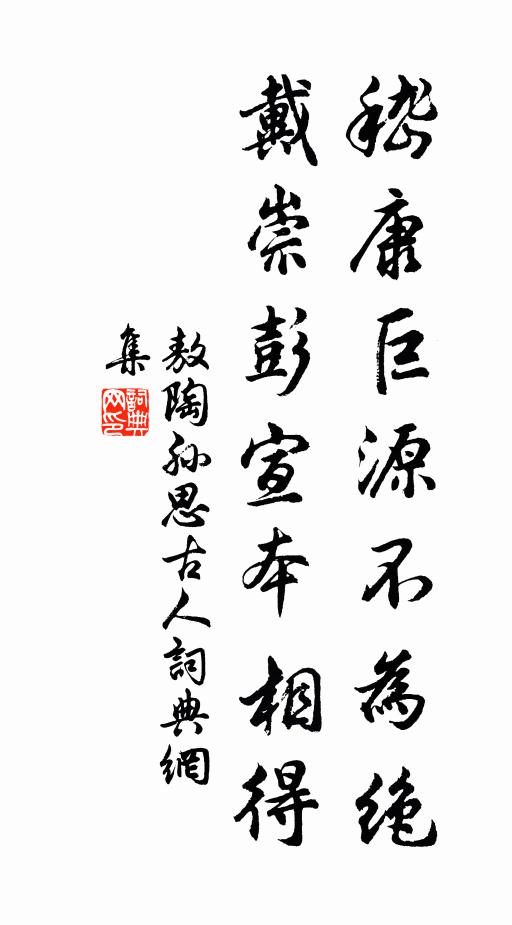 嵇康巨源不為絶
戴崇彭宣本相得
敖陶孫思古人詞典網
集
詞典
网印